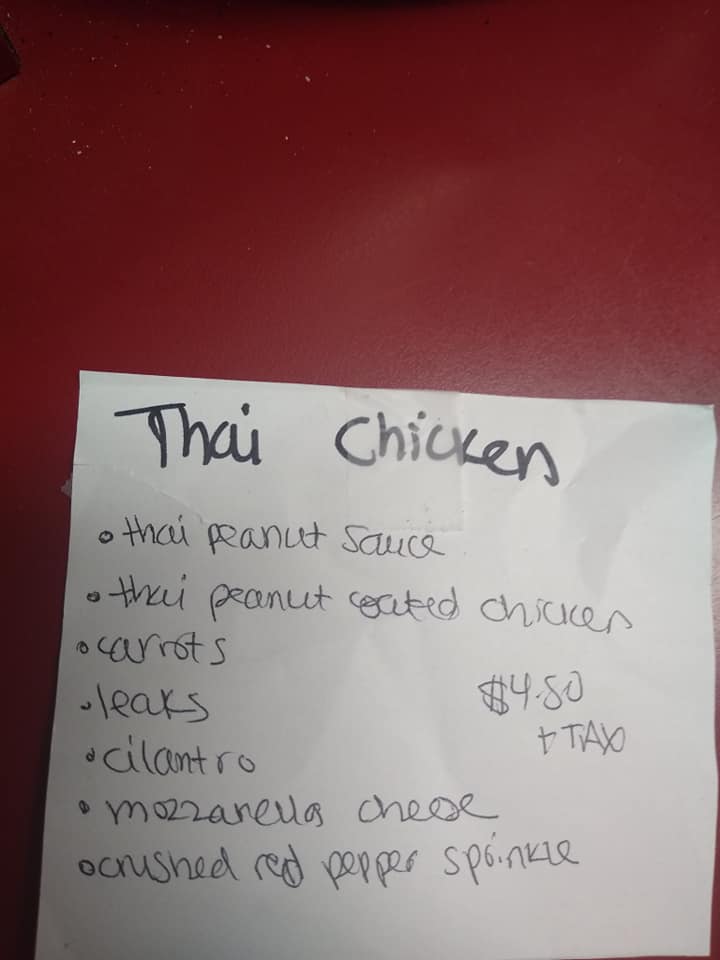 Thai Chicken
• thai peanut sauce
• thai peanut coated chicken
• carrots
• leaks
$4.80
+ TAX
• cilantro
• mozzarella cheese
• crushed red pepper sprinkle